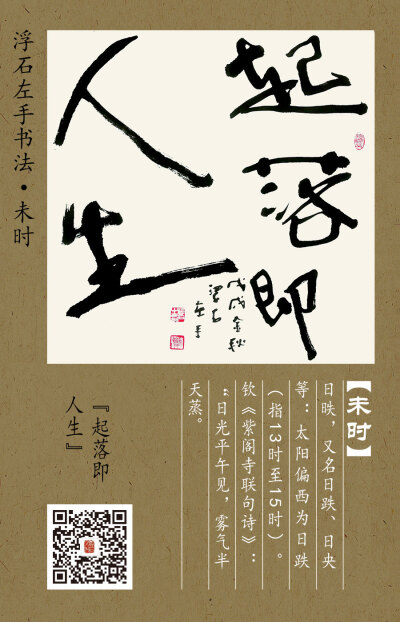 浮石左手书法·未时
起落即
人生
戊戌金秋
浮石
左手
【未时】
日昳，又名日跌、日央
等：太阳偏西为日跌
（指13时至15时）。
钦《紫阁寺联句诗》：
“日光平午见，雾气半
天蒸。
『起落即
人生』